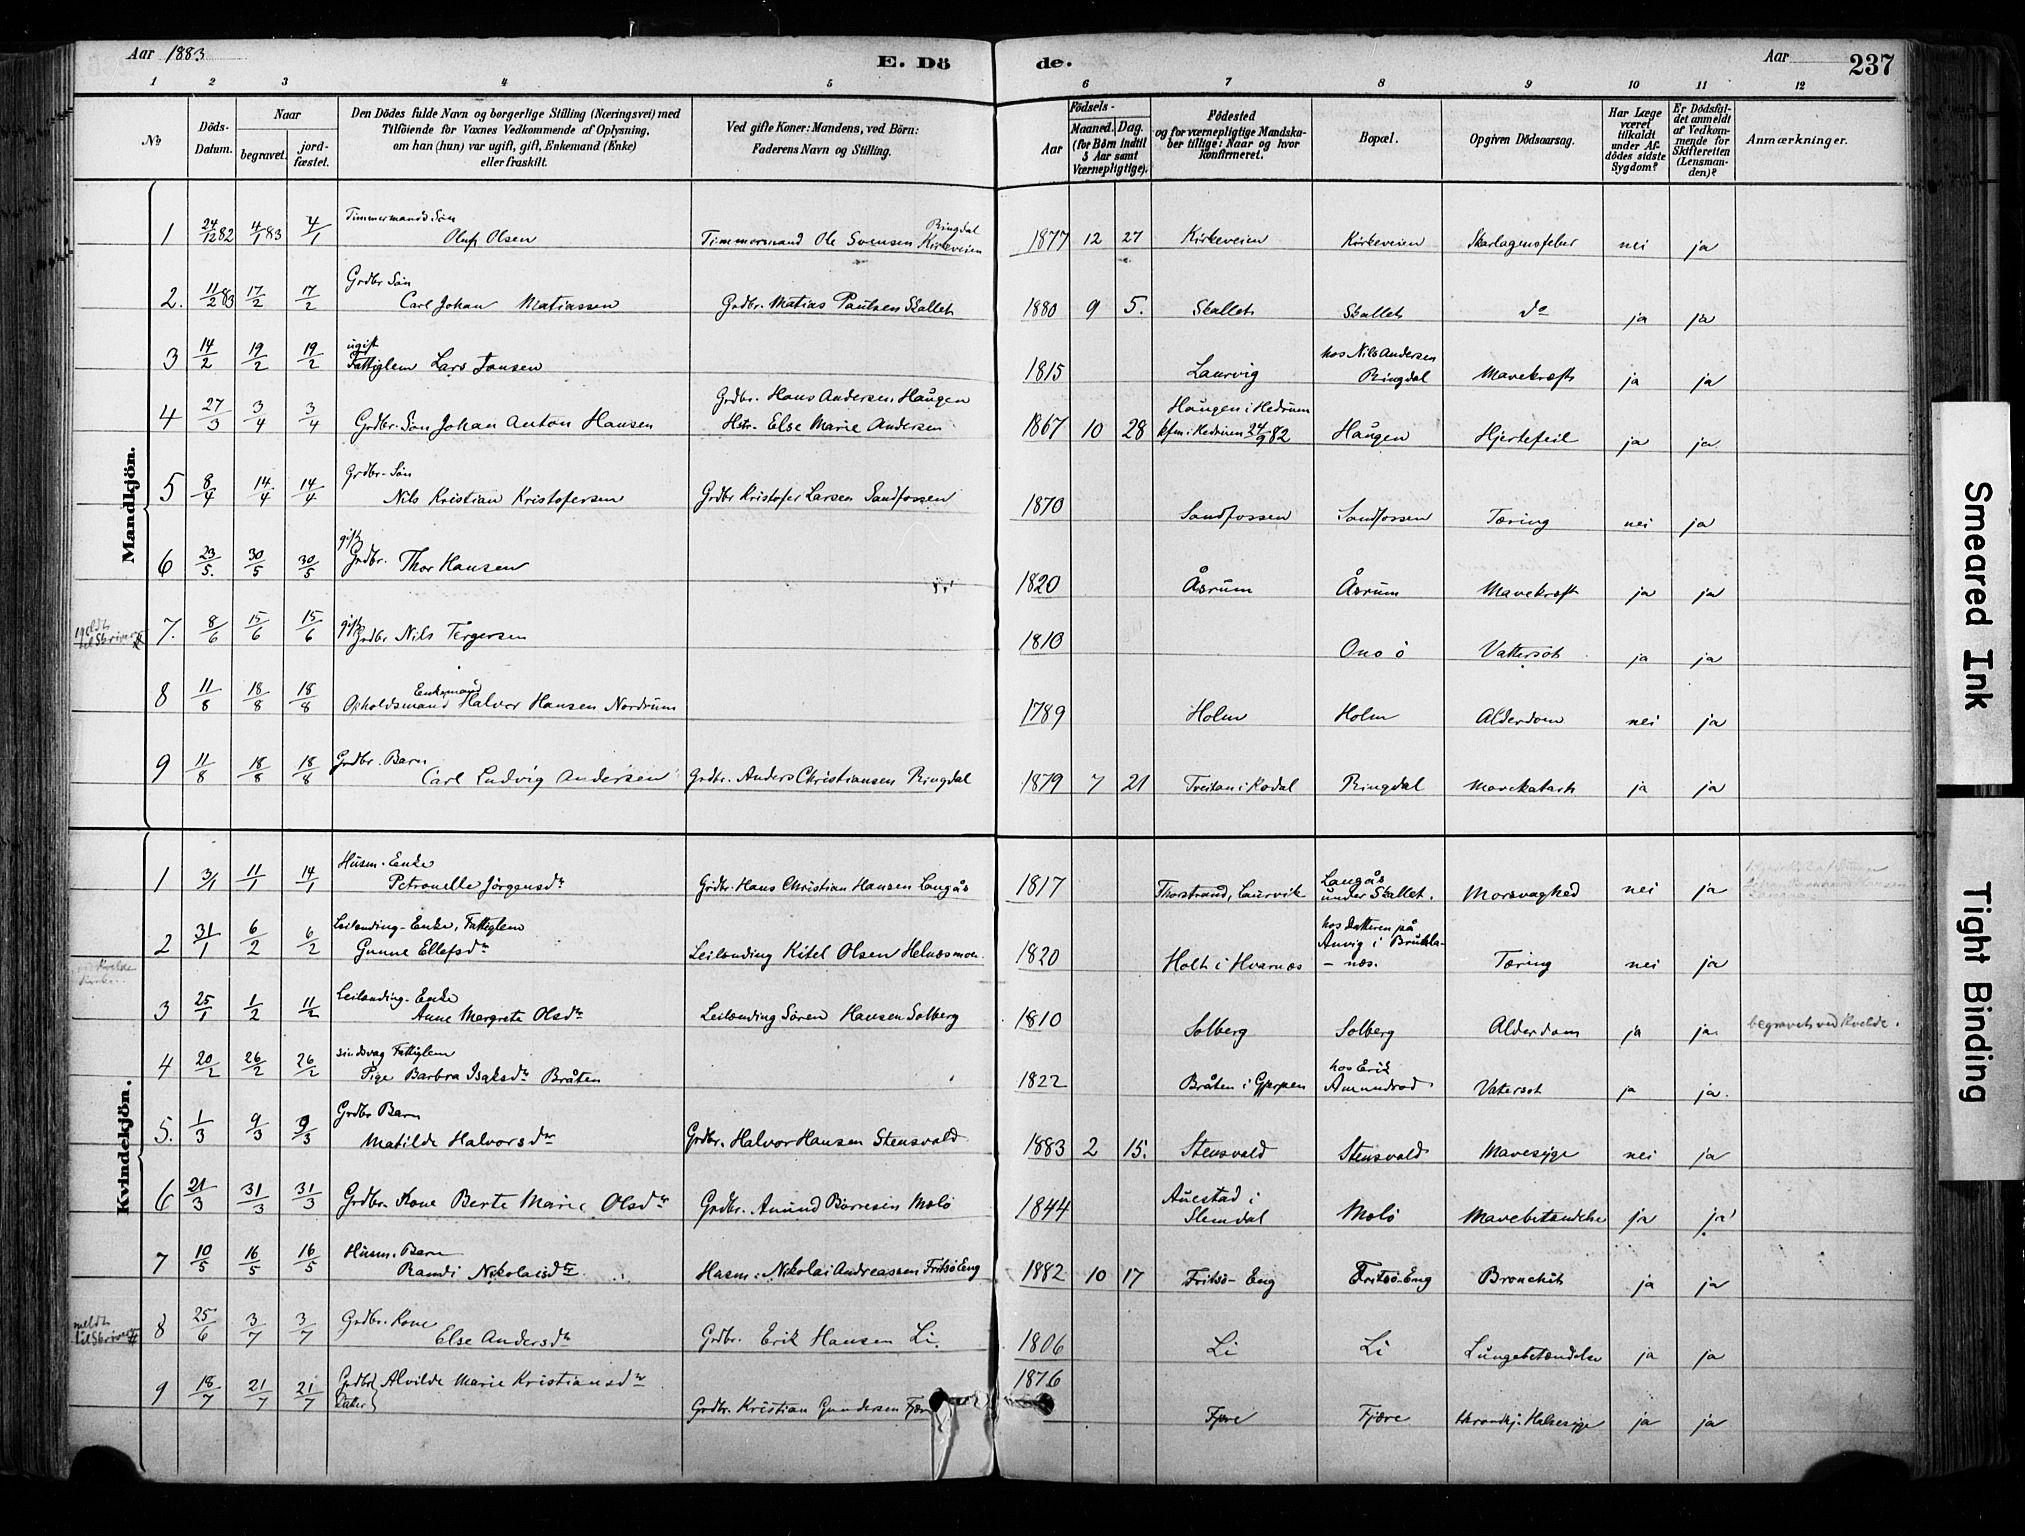 Aar 1883
E. Dö de.
Aar
237
1 2 3 4 5 6 7 8 9 10 11 12
No
Döds-Datum.
Naar
begravet.
jordfæstet.
Den Dödes fulde Navn og borgerlige Stilling (Næringsvei) med
Tilföiende for Voxnes Vedkommende af Oplysning,
om han (hun) var ugift, gift, Enkemand (Enke)
eller fraskilt.
Ved gifte Koner: Mandens, ved Börn:
Faderens Navn og Stilling.
Födsels-
Aar
Maaned. Dag.
(for Börn indtil
5 Aar samt
Værnepligtige).
Födested
og for værnepligtige Mandska-
ber tillige: Naar og hvor
konfirmeret.
Bopæl.
Opgiven Dödsaarsag.
Har Læge
været
tilkaldt
under Af-
dödes sidste
Sygdom?
Er Dödsfal-
det anmeldt
af Vedkom-
mende for
Skifteretten
(Lensman-
den)?
Anmærkninger.
Mandkjön.
1 24/12 82 4/1 83 4/1 Timmermands Sön Oluf Olsen Timmermand Ole Svensen Ringdal Kirkeveien 1877 12 27 Kirkeveien Kirkeveien Skarlagensfeber nei ja
2. 11/2 83 17/2 17/2 Grdbr Sön Carl Johan Matiassen Grdbr. Matias Paulsen Skallet 1880 9 5. Skallet Skallet do ja ja
3 14/2 19/2 19/2 ugift Fattiglem Lars Jansen 1815 Laurvig hos Nils Andersen Ringdal Mavekræft ja ja
4 27/3 3/4 3/4 Grdbr. Sön Johan Anton Hansen Grdbr. Hans Andersen Haugen Hstr. Else Marie Andersen 1867 10 28 Haugen i Hedrum kfm i Hedrum 24/9 82 Haugen Hjertefeil ja ja
5 8/4 14/4 14/4 Grdbr-Sön Nils Kristian Kristofersen Grdbr Kristofer Larsen Sandfossen 1870 Sandfossen Sandfossen Tæring nei ja
6 23/5. 30/5 30/5 gift Grdbr. Thor Hansen 1820 Åsrum Åsrum Mavekræft ja ja
7. 8/6 15/6 15/6 gift Grdbr Nils Tergersen 1810 Onsö Vattersot ja ja
8 11/8 18/8 18/8 Enkemand Opholdsmand Halvor Hansen Nordrum 1789 Holm Holm Alderdom nei ja
9 11/8 18/8 18/8 Grdbr. Barn Carl Ludvig Andersen Grdbr. Anders Christiansen Ringdal 1879 7 21 Treitan i Kodal Ringdal Mavekatarh ja ja
Kvindekjön.
1 3/1 11/1 14/1 Husm. Enke Petronelle Jörgensdtr Grdbr. Hans Christian Hansen Langås 1817 Thorstrand, Laurvik Langås under Skallet. Morsvaghed nei ja
2 31/1 6/2 6/2 Leilending-Enke, Fattiglem Gunne Ellefsdtr Leilending Kitel Olsen Helnæsmoen 1820 Holt i Hvarnæs hos datteren på Anvig i Brunla-næs. Tæring nei ja
3 25/1 1/2 11/2 Leilending-Enke Anne Margrete Olsdtr Leilending Sören Hansen Solberg 1810 Solberg Solberg Alderdom ja ja begravet ved Kvelde.
4 20/2 26/2 26/2 sindsvag Fattiglem Pige Barbra Isaksdtr Bråten 1822 Bråten i Gjerpen hos Erik Amundrod Vatersot ja ja.
5. 1/3 9/3 9/3 Grdbr Barn Matilde Halvorsdtr Grdbr. Halvor Hansen Stensvald 1883 2 15. Stensvald Stensvald Mavesyge nei ja
6 21/3 31/3 31/3 Grdbr. Kone Berte Marie Olsdtr Grdbr. Amund Börresen Melö 1844 Auestad i Slemdal Melö Mavebetændelse ja ja
7 10/5 16/5 16/5 Husm. Barn Randi Nikolaisdtr Husm: Nikolai Andreassen Fritsö Eng 1882 10 17 Fritsö-Eng Fritsö-Eng Bronchit ja ja
meldt til Skriver
8 25/6 3/7 3/7 Grdbr. Kone Else Andersdtr Grdbr. Erik Hansen Li. 1806 Li Li Lungebetændelse ja ja
9 18/7 21/7 21/7 Grdbr Dater Alvilde Marie Kristiansdtr Grdbr. Kristian Gundersen Fjære 1876 Fjære Fjære Halsesyge ja ja
Smeared Ink
Tight Binding